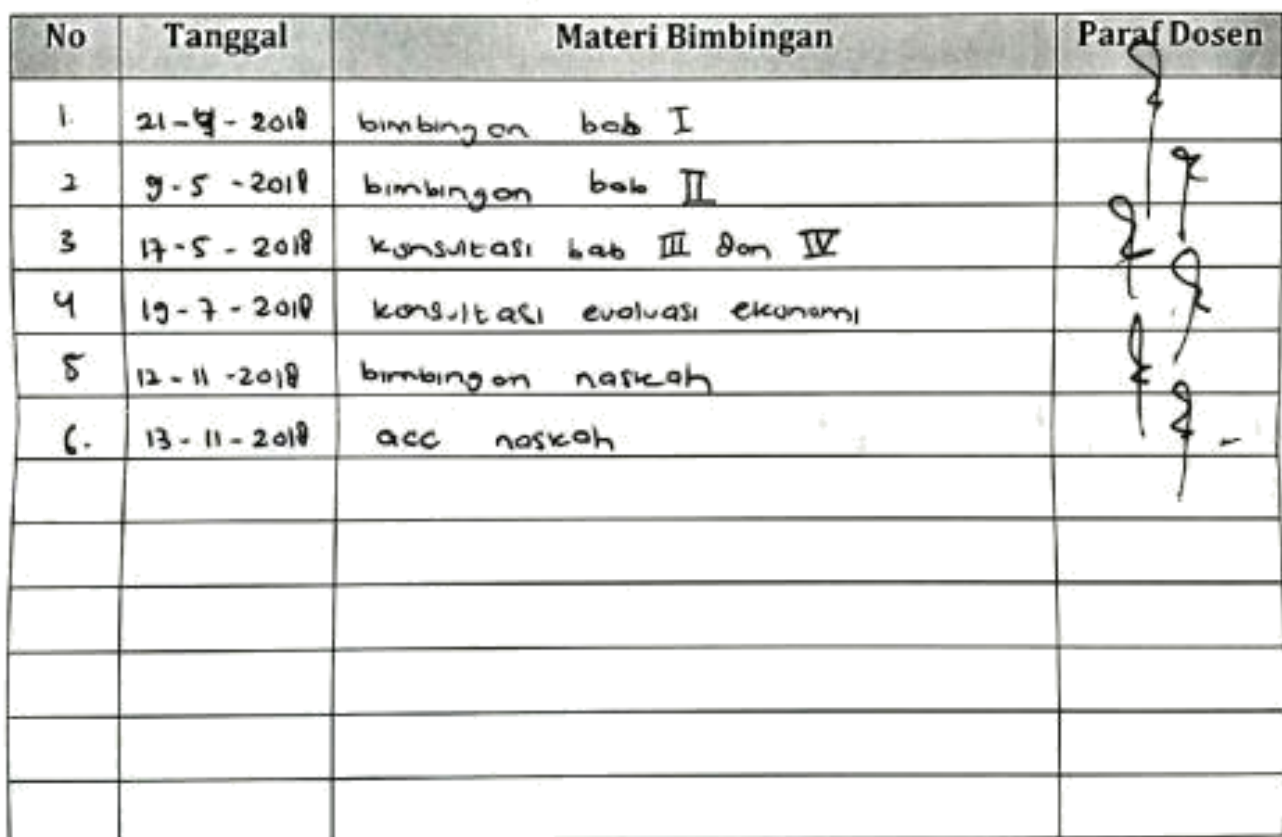 No Tanggal Materi Bimbingan Paraf Dosen
1. 21-4-2018 bimbingan bab I
2 9-5-2018 bimbingan bab II
3 17-5-2018 konsultasi bab III dan IV
4 19-7-2018 konsultasi evaluasi ekonomi
5 12-11-2018 bimbingan naskah
6. 13-11-2018 acc naskah